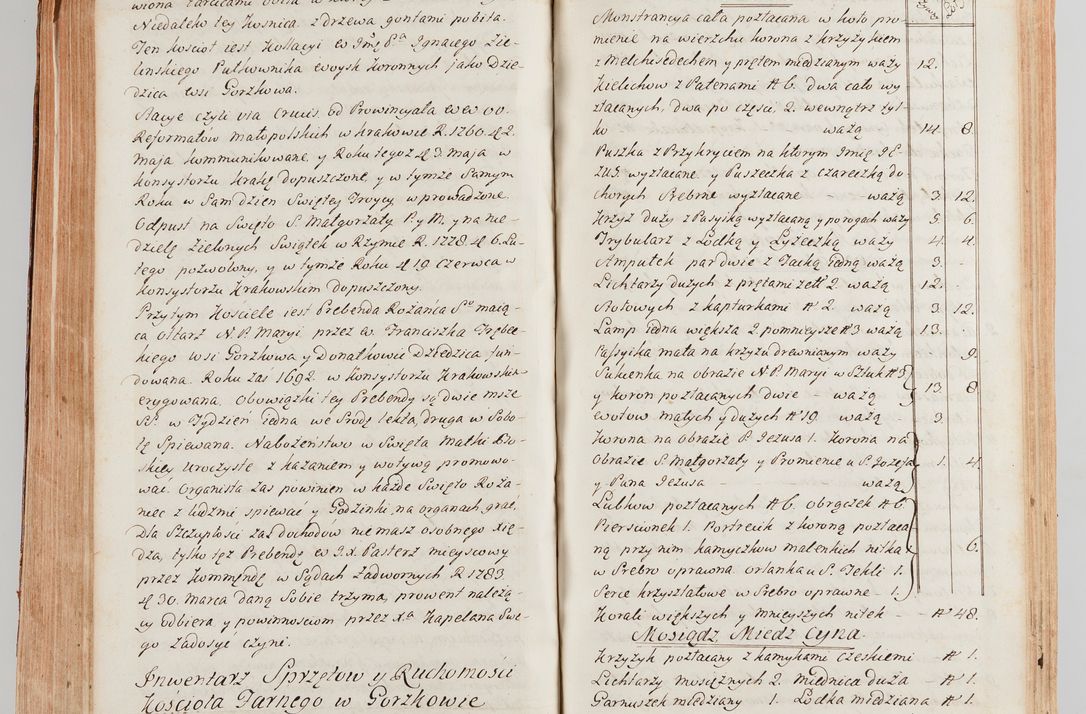 Niedaleko tey Kosnica z drzewa gontami pobita.
Ten koscioł iest Kollacyi
Ignacego Zie-
linskiego Pułkownika woysk Koronnych jako Dzie-
dzica wsi Gorzkowa.
Stacye czyli via Crucis od Prowincyała OO.
Reformatow małopolskich w Krakowie R. 1760. d 2.
Maja kommunikowane, y Roku tegoż d 3. Maja w
Konsystorzu Krakę dopuszczone, y w tymże Samym
Roku w Sam Dzien Swiętey Troycy wprowadzone.
Odpust na Swięto S. Małgorzaty P. y M. y na nie-
dzielę Zielonych Swiątek w Rzymie R. 1778. d 6. Lu-
tego pozwolony, y w tymże Roku d 19 Czerwca w
Konsystorzu Krakowskim dopuszczony.
Przy tym Kościele iest Prebenda Rożańca Sgo maią-
ca ołtarz N. P. Maryi przez w. Franciszka Trębec-
kiego wsi Gorzkowa y Donatkowic Dziedzica, fun-
dowana. Roku zaś 1692. w Konsystorzu Krakowskim
erygowana. Obowiązki tey Prebendy są dwie msze
SS. w Tydzień iedna we Srodę lekta, druga w Sobo-
tę Spiewana. Nabożeństwo w Swięta Matki Bo-
skiey uroczyste z kazaniem y wotywą promowo-
wać. Organista zas powinien w każde Swięto Roża-
niec z ludzmi spiewać y Godzinki na organach grać.
Dla Szczupłości zaś dochodow nie masz osobnego xię-
dza, tylko tęż Prebendę w J.x. Pasterz mieyscowy
przez Kommendę w Sądach Zadwornych R. 1783.
d 30. Marca daną Sobie trzyma, prowent należą-
cy odbiera y powinnosciom przez xa. Kapelana Swe-
go Zadosyć czyni.
Inwentarz Sprzętow y Ruchomości
Kościoła Farnego w Gorzkowie
Monstrancya cała pozłacana w koło pro-
mienie na wierzchu korona z krzyżykiem
z Melchisedechem y prętem miedzianym waży 12.
Kielichow z Patenami № 6. dwa cało wy
złacanych, dwa po części 2. wewnątrz tyl-
ko ważą 14. 8.
Puszka z Przykryciem na ktorym Imię JE-
ZUS wyzłacane y Puszeczka z czareczką do
chorych Srebrne wyzłacane - ważą 3. 12.
Krzyż duży z Passyiką wyzłacaną y porogach waży 5 6.
Trybularz z Lodką y Łyżeczką waży 4. 4.
Ampułek par dwie z Tacką iedną ważą 3. -
Lichtarzy dużych z prętami 2. ważą 12. -
Stołowych z kapturkami № 2. ważą 3. 12.
Lamp iedna większa 2. pomnieysze № 3 ważą 13. .
Passyika mała na krzyżu drewnianym waży 9.
Sukienka na obrazie N. P. Maryi w Sztuk № 5
y koron pozłacanych dwie - ważą 13. 8
wotow małych y dużych № 19 ważą 3.
Korona na obrazie P. Jezusa 1. Korona na
Obrazie S. Małgorzaty y Promienie u S. Jozefa 1. 4.
y Pana Jezusa - ważą
Lubkow pozłacanych № 6. obrączek № 6.
Piersconek 1. Portrecik z koroną pozłaca-
ną przy nim kamyczkow malenkich nitka 6.
w Srebro oprawna orlanka u S. Tekli 1.
Serce krzyształowe w Srebro oprawne - 1.
Korali większych y mnieyszych nitek - № 48.
Mosiądz, Miedz Cyna.
Krzyżyk pozłacany z kamykami Czeskiemi - № 1.
Lichtarzy mosiężnych 2. Miednica duża - № 1.
Garnuszek miedziany 1. Lodka miedziana № 1.